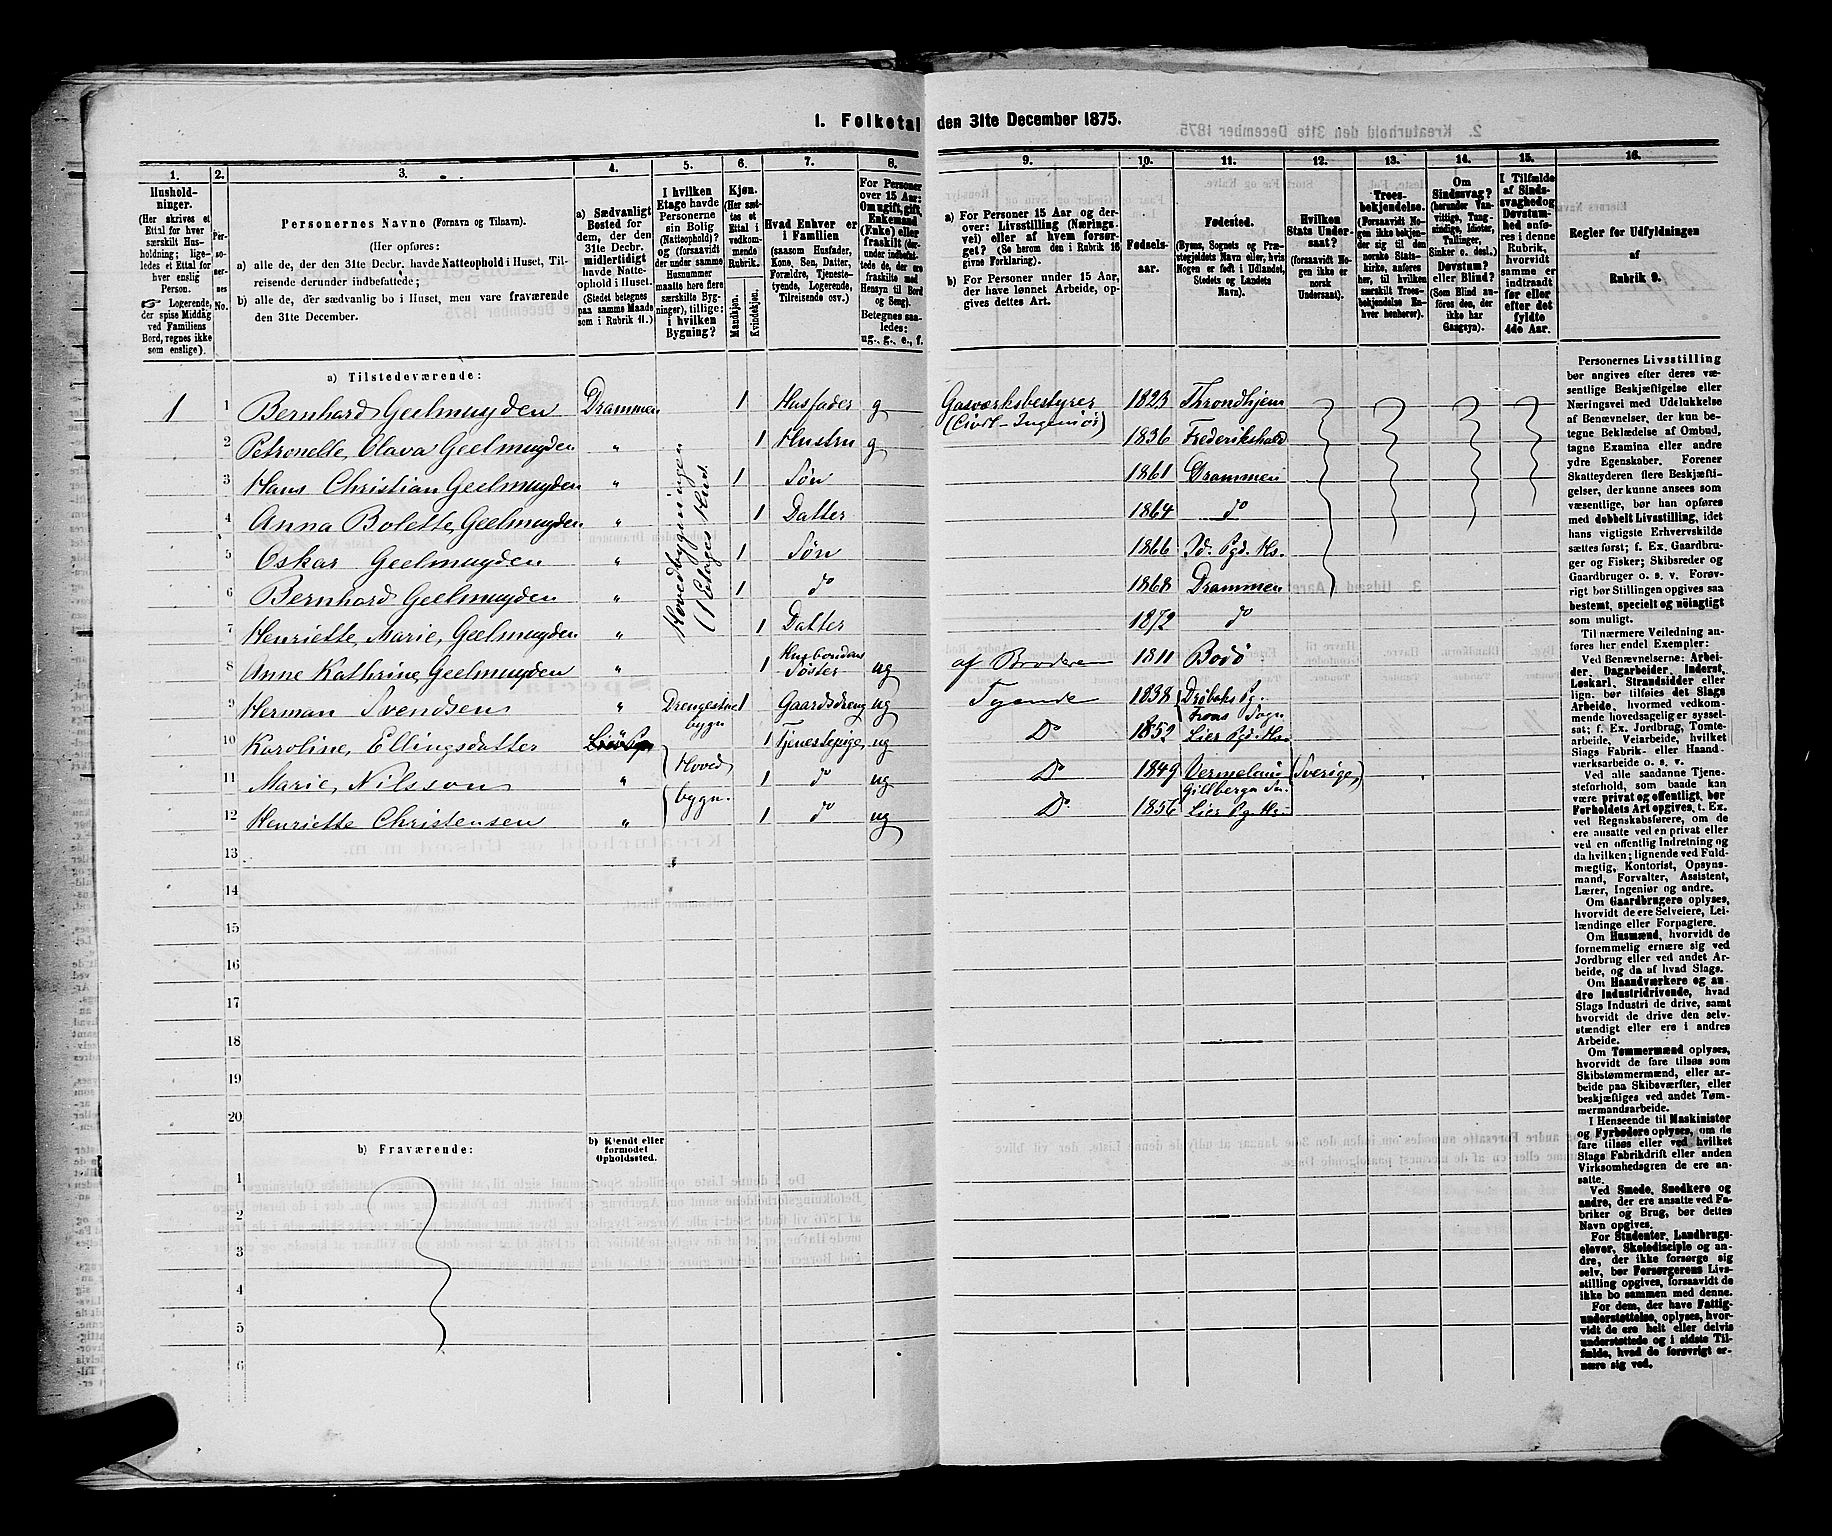 1. Folketal den 31te December 1875.
1. 2. 3. 4. 5. 6. 7. 8. 9. 10. 11. 12. 13. 14. 15. 16.
Hushold-
ninger.
(Her skrives et
Ettal for hver
særskilt Hus-
holdning; lige-
ledes et Ettal for
hver enslig
Person.
☞ Logerende,
der spise Middag
ved Familiens
Bord, regnes ikke
som enslige).
Per-
so-
ner-
nes
No.
Personernes Navne (Fornavn og Tilnavn).
(Her opføres:
a) alle de, der den 31te Decbr. havde Natteophold i Huset, Til-
reisende derunder indbefattede;
b) alle de, der sædvanlig bo i Huset, men vare fraværende
den 31te December.
a) Sædvanligt
Bosted for
dem, der den
31te Decbr.
midlertidigt
havde Natte-
ophold i Huset.
(Stedet betegnes
paa samme Maade
som i Rubrik 11.)
I hvilken
Etage havde
Personerne
sin Bolig
(Natteophold)?
og (forsaavidt
der under samme
Husnummer
maatte høre flere
særskilte Byg-
ninger), tillige:
i hvilken
Bygning?
Kjøn.
(Her sæt-
tes et
Ettal i
vedkom-
mende
Rubrik.
Mandkjøn.
Kvindekjøn.
Hvad Enhver er
i Familien
(saasom Husfader,
Kone, Søn, Datter,
Forældre, Tjeneste-
tyende, Logerende,
Tilreisende osv.)
For Personer
over 15 Aar:
Om ugift, gift,
Enkemand
(Enke) eller
fraskilt (der-
under indbefat-
tede de, der ere
fraskilte med
Hensyn til Bord
og Seng).
Betegnes saa-
ledes:
ug., g., e., f.
a) For Personer 15 Aar og der-
over: Livsstilling (Nærings-
vei) eller af hvem forsør-
get? (Se herom den i Rubrik 16
givne Forklaring).
b) For Personer under 15 Aar,
der have lønnet Arbeide, op-
gives dettes Art.
Fødsels-
aar.
Fødested.
(Byens, Sognets og Præ-
stegjeldets Navn eller, hvis
Nogen er født i Udlandet,
Stedets og Landets
Navn).
Hvilken
Stats Under-
saat?
(forsaavidt No-
gen ikke er
norsk
Undersaat).
Troes-
bekjendelse.
(Forsaavidt No-
gen ikke bekjen-
der sig til den
norske Stats-
kirke, anføres
her, til hvilken
særskilt Troes-
bekjendelse En-
hver henhører).
Om
Sindssvag?
(herunder Van-
vittige, Tung-
sindige, Idioter,
Tullinger,
Sinker o. desl.)
Døvstum?
eller Blind?
(Som Blind an-
føres den, der
ikke har
Gangsyn).
I Tilfælde
af Sinds-
svaghed og
Døvstum-
hed anfø-
res i denne
Rubrik,
hvorvidt
samme er
indtraadt
før eller
efter det
fyldte
4de Aar.
Regler for Udfyldningen
af
Rubrik 9.
a) Tilstedeværende:
1 1 Bernhard Geelmuyden Drammen 1 Husfader g Gasværksbestyrer (Civil-Ingeniör) 1823 Throndhjem
2 Petronelle Olava Geelmuyden " 1 Hustru g 1836 Frederikshald
3 Hans Christian Geelmuyden " 1 Søn 1861 Drammen
4 Anna Bolette Geelmuyden " 1 Datter 1864 do
5 Oskar Geelmuyden " 1 Søn 1866 Id. Pgd. Hs.
6 Bernhard Geelmuyden " 1 do 1868 Drammen
7 Henriette Marie Geelmuyden " 1 Datter 1872 do
Hovedbygningen
(1 Etages Hus.
8 Anne Kathrine Geelmuyden " 1 Husbondens Søster ug af Broderen 1811 Bodö
9 Herman Svendsen " Drengestue bygn 1 Gaardsdreng ug Tyende 1838 Drøbaks Pg. Frons Sogn
10 Karoline Ellingsdatter 1 Tjenestepige ug Do 1852 Lier Pgd. Hs.
11 Marie Nilsson " Hoved bygn. 1 do ug Do 1849 Vermeland (Sverige) Gillberga Sn.
12 Henriette Christensen " 1 do ug Do 1856 Lier Pg. Hs.
13
14
15
16
17
18
19
20
b) Fraværende:
b) Kjendt eller
formodet
Opholdssted.
1
2
3
4
5
6
Personernes Livsstilling
bør angives efter deres væ-
sentlige Beskjæftigelse eller
Næringsvei med Udelukkelse
af Benævnelser, der kun be-
tegne Beklædelse af Ombud,
tagne Examina eller andre
ydre Egenskaber. Forener
Skatteyderen flere Beskjæfti-
gelser, der kunne ansees som
væsentlige, bør han opføres
med dobbelt Livsstilling, idet
hans vigtigste Erhvervskilde
sættes først; f. Ex. Gaardbru-
ger og Fisker; Skibsreder og
Gaardbruger o. s. v. Forøv-
rigt bør Stillingen opgives saa
bestemt, specielt og nøiagtigt
som muligt.
Til nærmere Veiledning an-
føres her endel Exempler:
Ved Benævnelserne: Arbei-
der, Dagarbeider, Inderst,
Løskarl, Strandsidder eller
lign. bør tilføies det Slags
Arbeide, hvormed vedkom-
mende hovedsagelig er syssel-
sat; f. Ex. Jordbrug, Tomte-
arbeide, Veiarbeide, hvilket
Slags Fabrik- eller Haand-
værksarbeide o. s. v.
Ved alle saadanne Tjene-
steforhold, som baade kan
være privat og offentligt, bør
Forholdets Art opgives, f. Ex.
ved Regnskabsførere, om de
ere ansatte ved en privat eller
ved en offentlig Indretning og
da hvilken; lignende ved Fuld-
mægtig, Kontorist, Opsyns-
mand, Forvalter, Assistent,
Lærer, Ingeniør og andre.
Om Gaardbrugere oplyses,
hvorvidt de ere Selveiere, Lei-
lændinge eller Forpagtere.
Om Husmænd, hvorvidt de
fornemmelig ernære sig ved
Jordbrug eller ved andet Ar-
beide, og da af hvad Slags.
Om Haandværkere og an-
dre Industridrivende, hvad
Slags Industri de drive, samt
hvorvidt de drive den selv-
stændigt eller ere i andres
Arbeide.
Om Tømmermænd oplyses,
hvorvidt de fare tilsøs som
Skibstømmermænd, eller ar-
beide paa Skibsværfter, eller
beskjæftiges ved andet Tøm-
mermandsarbeide.
I Henseende til Maskinister
og Fyrbødere oplyses, om de
fare tilsøs eller ved hvilket
Slags Fabrikdrift eller anden
Virksomhedsgren de ere an-
satte.
Ved Smede, Snedkere og
andre, der ere ansatte ved Fa-
briker og Brug, bør dettes
Navn opgives.
For Studenter, Landbrugs-
elever, Skoledisciple og an-
dre, der ikke forsørge sig
selv, bør Forsørgerens Livs-
stilling opgives, forsaavidt de
ikke bo sammen med denne.
For dem, der have Fattig-
understøttelse, oplyses, hvor-
vidt de ere helt eller delvis
understøttede og i sidste Til-
fælde, hvad de forøvrigt er-
nære sig ved.